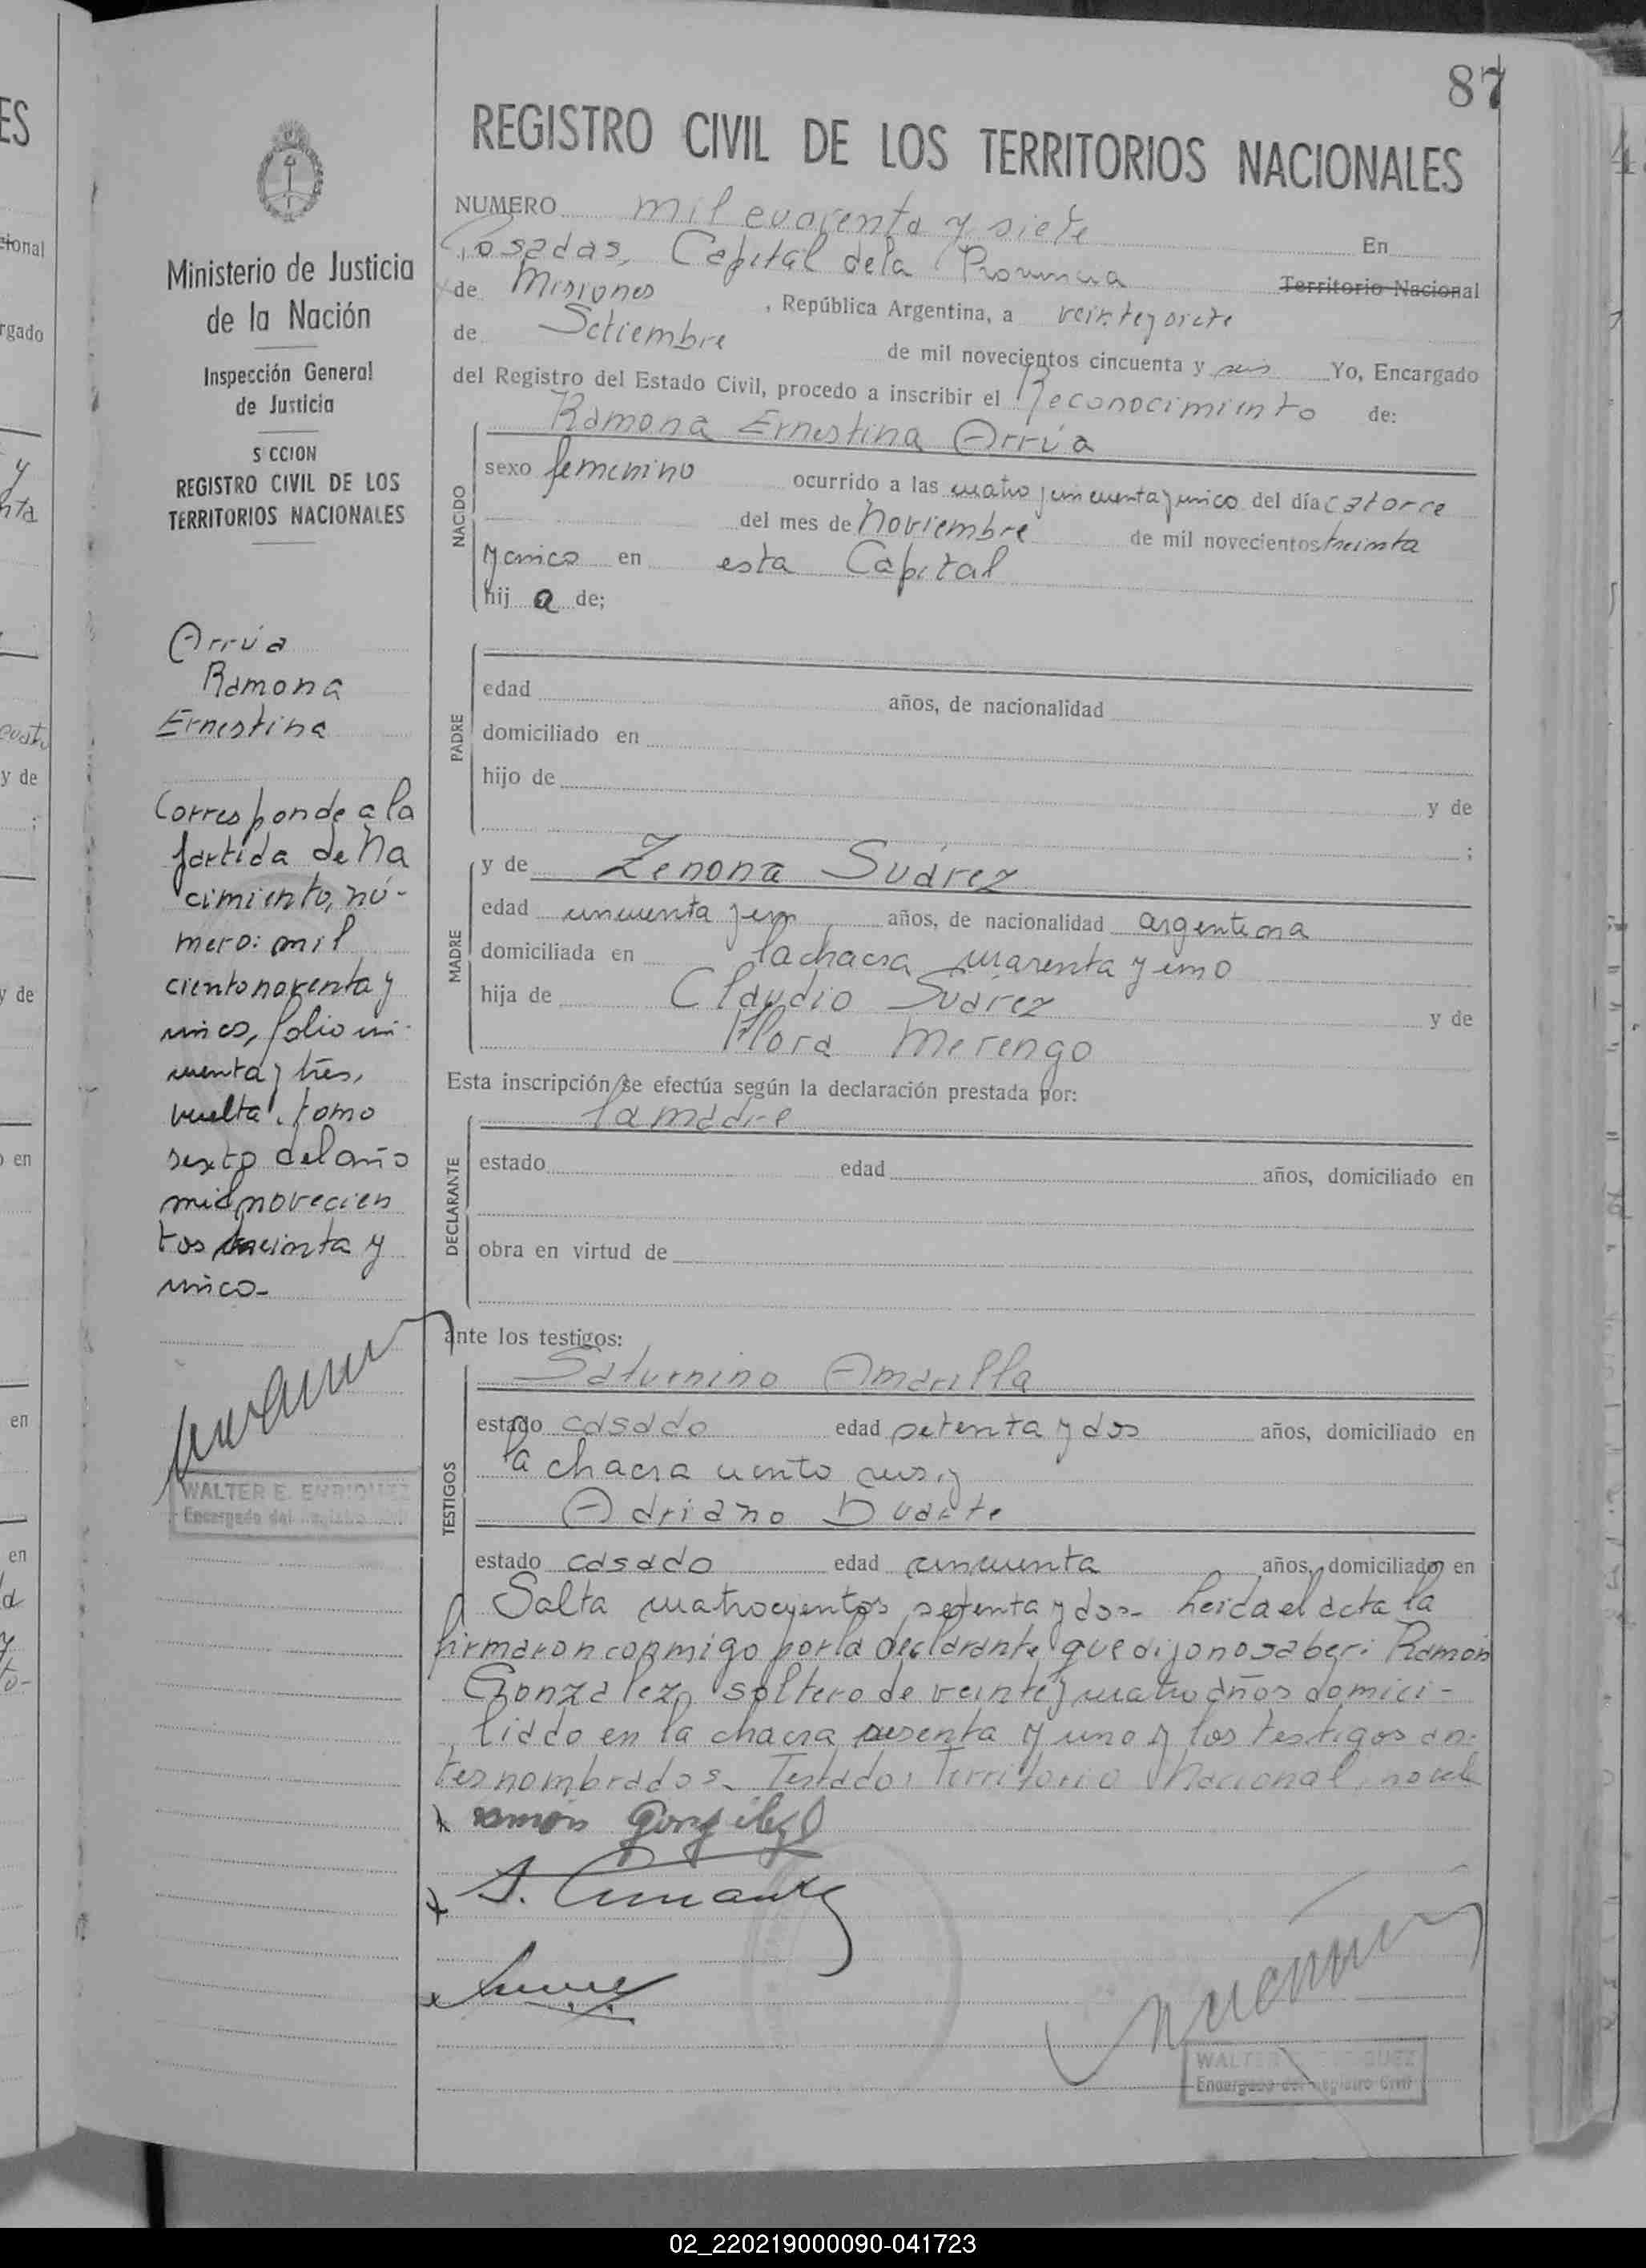 87
REGISTRO CIVIL DE LOS TERRITORIOS NACIONALES
Ministerio de Justicia
de la Nación
Inspección General
de Justicia
S CCION
REGISTRO CIVIL DE LOS
TERRITORIOS NACIONALES
Arrúa
Ramona
Ernestina
Corresponde a la
partida de Na
cimiento, nú-
mero: mil
ciento noventa y
cinco, folio cin-
cuenta y tres,
vuelta. tomo
sexto del año
mil novecien
tos treinta y
cinco-
WALTER E. ENRIQUEZ
Encargado del Registro Civil
NUMERO mil cuarenta y siete En
Posadas, Capital de la Provincia Territorio Nacional
de Misiones, República Argentina, a veintey siete
de Setiembre de mil novecientos cincuenta y seis Yo, Encargado
del Registro del Estado Civil, procedo a inscribir el Reconocimiento de:
NACIDO
Ramona Ernestina Arrúa
sexo femenino ocurrido a las cuatro y cincuenta y cinco del día catorce
del mes de Noviembre de mil novecientos treinta
y cinco en esta Capital
hij a de;
PADRE
edad años, de nacionalidad
domiciliado en
hijo de y de
;
MADRE
y de Zenona Suárez
edad cincuenta y un años, de nacionalidad argentina
domiciliada en la chacra cuarenta y uno
hija de Claudio Suárez y de
Flora Merengo
Esta inscripción se efectúa según la declaración prestada por:
DECLARANTE
la madre
estado edad años, domiciliado en
obra en virtud de
ante los testigos:
TESTIGOS
Saturnino Amarilla
estado casado edad setenta y dos años, domiciliado en
la chacra ciento seis y
Adriano Duarte
estado casado edad cincuenta años, domiciliado en
Salta cuatrocientos setenta y dos- Leida el acta la
firmaron conmigo por la declarante que dijo no saber: Ramón
Gonzalez, soltero de veinte y cuatro años domici-
liado en la chacra sesenta y uno y los testigos an-
tes nombrados. Testado: Territorio Nacional, no vale
Ramón González
WALTER E. ENRIQUEZ
Encargado del Registro Civil
02_220219000090-041723